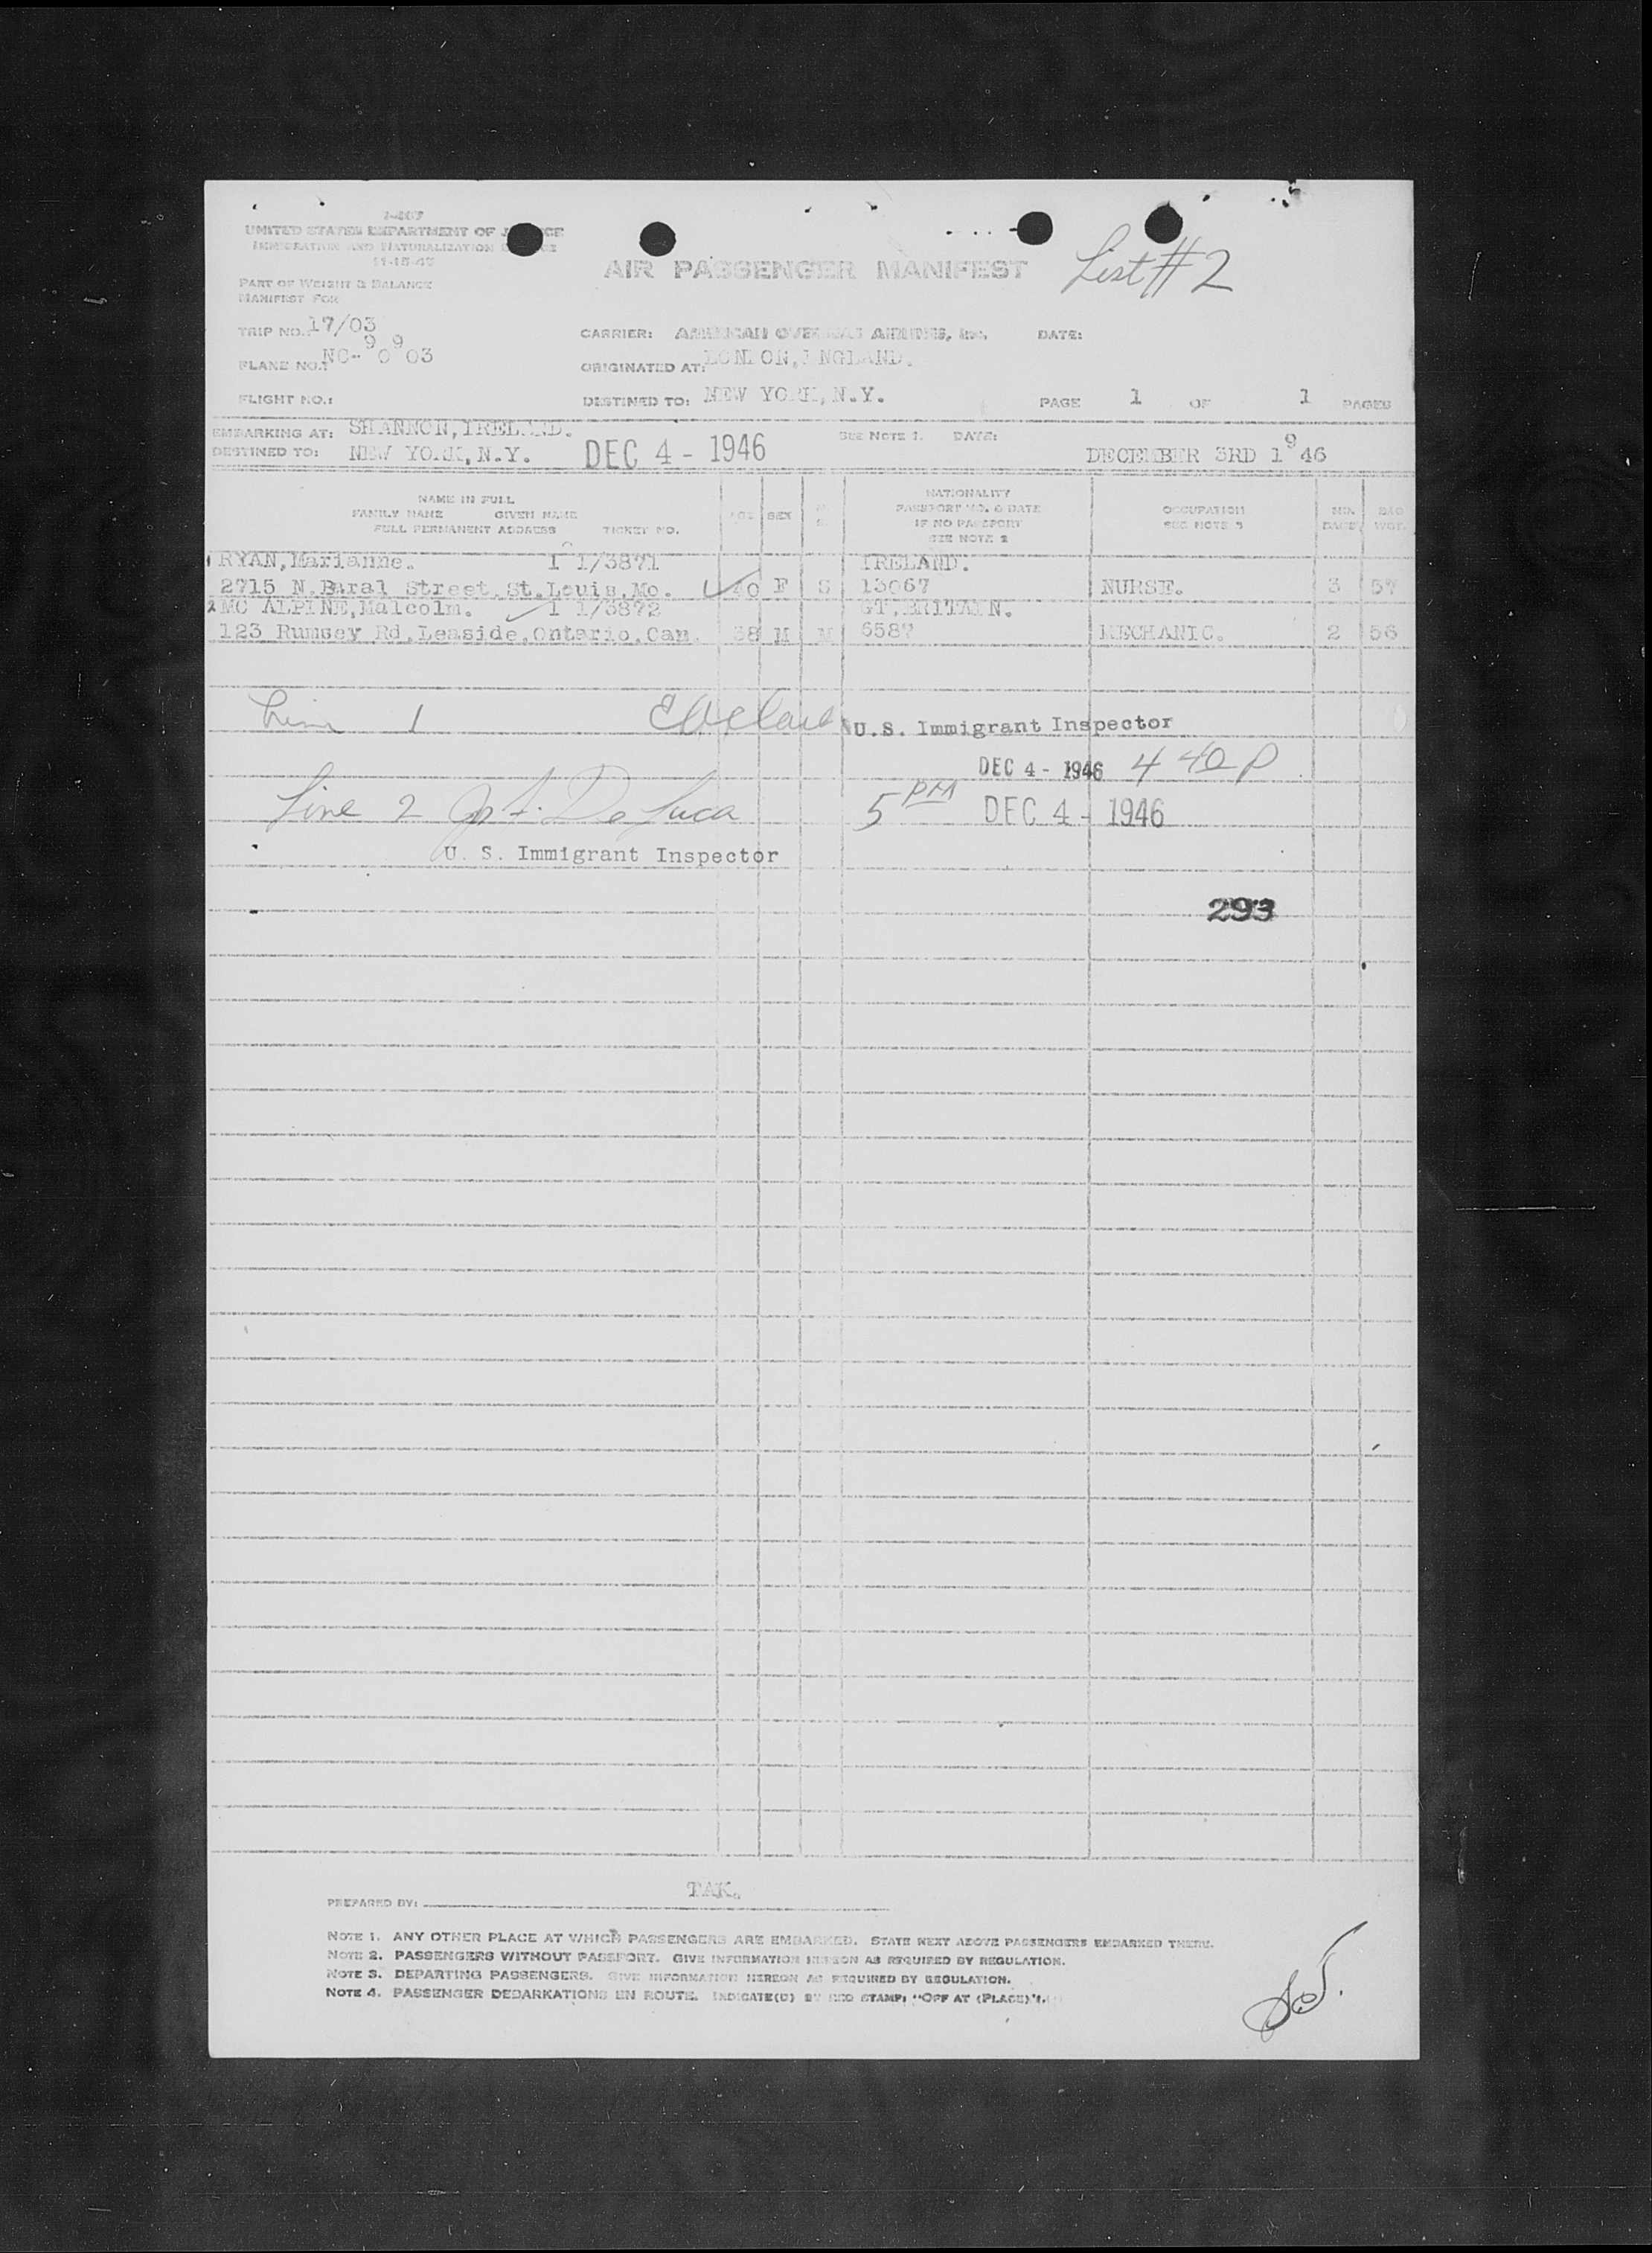 I-467
UNITED STATES DEPARTMENT OF JUSTICE
IMMIGRATION AND NATURALIZATION
11-15-45
AIR PASSENGER MANIFEST
List #2
PART OF WEIGHT & BALANCE
MANIFEST FOR
TRIP NO. 17/03
CARRIER: AMERICAN OVERSEAS AIRLINES, INC.
DATE:
PLANE NO. NC-90903
ORIGINATED AT: LONDON, ENGLAND.
FLIGHT NO.:
DESTINED TO: NEW YORK, N.Y.
PAGE 1 OF 1 PAGES
EMBARKING AT: SHANNON, IRELAND.
SEE NOTE 1. DATE:
DESTINED TO: NEW YORK, N.Y. DEC 4 - 1946
DECEMBER 3RD 1946
NAME IN FULL
FAMILY NAME GIVEN NAME
FULL PERMANENT ADDRESS TICKET NO.
AGE SEX M S
NATIONALITY
PASSPORT NO. & DATE
IF NO PASSPORT
SEE NOTE 2
OCCUPATION
SEE NOTE 3
BAG WGT.
1 RYAN, Marianne. I 1/3871 IRELAND.
2715 N. Street, St. Louis, Mo. 40 F S 13067 NURSE. 3 57
2 MC ALPINE, Malcolm. 1 1/3872 GT. BRITAIN.
123 Rumsey Rd, Leaside, Ontario, Can. 38 M M 6587 MECHANIC. 2 56
Line 1 U.S. Immigrant Inspector
DEC 4 - 1946 4 40 P
Line 2 De Luca 5 PM DEC 4 - 1946
U. S. Immigrant Inspector
293
PREPARED BY: TAK.
NOTE 1. ANY OTHER PLACE AT WHICH PASSENGERS ARE EMBARKED. STATE NEXT ABOVE PASSENGERS EMBARKED THERE.
NOTE 2. PASSENGERS WITHOUT PASSPORT. GIVE INFORMATION HEREON AS REQUIRED BY REGULATION.
NOTE 3. DEPARTING PASSENGERS. GIVE INFORMATION HEREON AS REQUIRED BY REGULATION.
NOTE 4. PASSENGER DEBARKATIONS EN ROUTE. INDICATE(D) BY RED STAMP: "OFF AT (PLACE)".